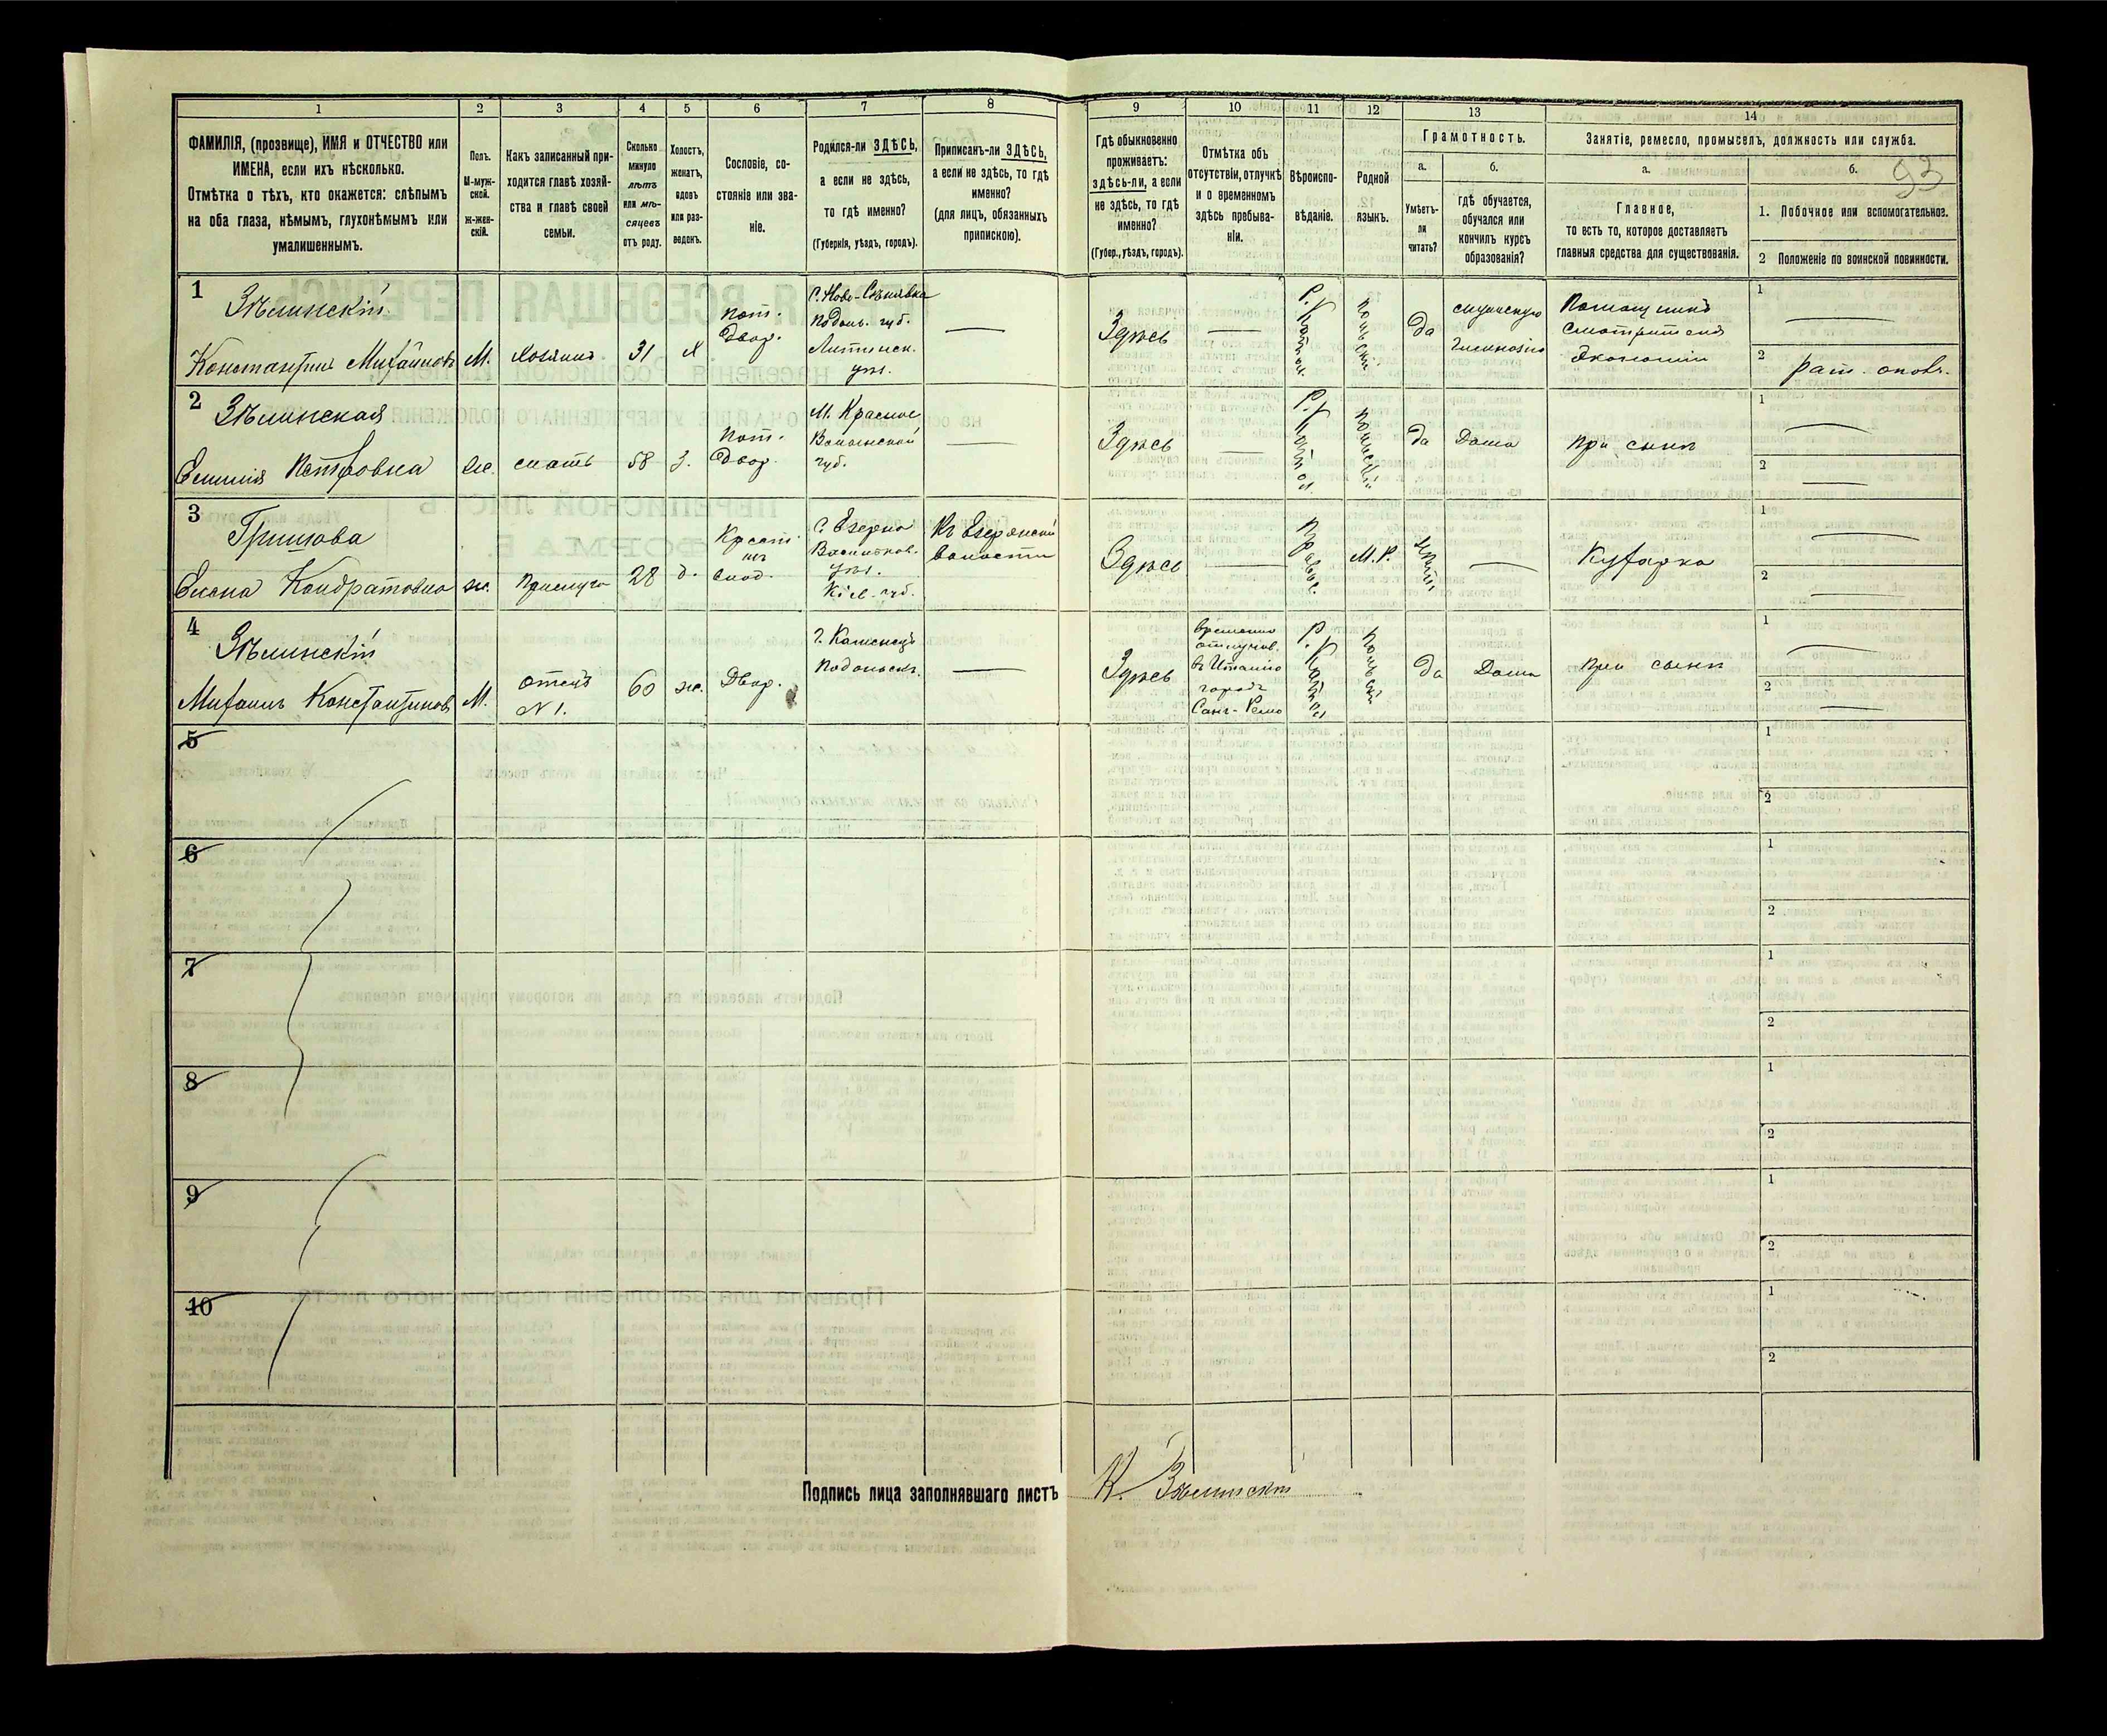 1 2 3 4 5 6 7 8 9 10 11 12 13 14
ФАМИЛІЯ, (прозвище), ИМЯ и ОТЧЕСТВО или
ИМЕНА, если ихъ нѣсколько.
Отмѣтка о тѣхъ, кто окажется: слѣпымъ
на оба глаза, нѣмымъ, глухонѣмымъ или
умалишеннымъ.
Полъ.
М-муж-
ской.
ж-жен-
скій.
Какъ записанный при-
ходится главѣ хозяй-
ства и главѣ своей
семьи.
Сколько
минуло
лѣтъ
или мѣ-
сяцевъ
отъ роду.
Холостъ,
женатъ,
вдовъ
или раз-
веденъ.
Сословіе, со-
стояніе или зва-
ніе.
Родился-ли ЗДѢСЬ,
а если не здѣсь,
то гдѣ именно?
(Губернія, уѣздъ, городъ).
Приписанъ-ли ЗДѢСЬ,
а если не здѣсь, то гдѣ
именно?
(для лицъ, обязанныхъ
припискою).
Гдѣ обыкновенно
проживаетъ:
здѣсь-ли, а если
не здѣсь, то гдѣ
именно?
(Губер., уѣздъ, городъ).
Отмѣтка объ
отсутствіи, отлучкѣ
и о временномъ
здѣсь пребыва-
ніи.
Вѣроиспо-
вѣданіе.
Родной
языкъ.
Грамотность.
а.
Умѣетъ-
ли
читать?
б.
гдѣ обучается,
обучался или
кончилъ курсъ
образованія?
Занятіе, ремесло, промыселъ, должность или служба.
а.
Главное,
то есть то, которое доставляетъ
главныя средства для существованія.
б.
93
1. Побочное или вспомогательное.
2 Положеніе по воинской повинности.
1
Зѣлинскій
Константинъ Михайловъ
М.
хозяинъ
31
х
Пот.
Двор.
С. Ново-Синявка
Подоль. губ.
Литинск.
уѣз.
Здѣсь
Р. Катол.
Польскій
да
Гимназію
Помощникъ
Смотрителя
Экономіи
1
2
рат. опол.
2
Зѣлинская
Емилія Петровна
ж.
мать
58
з.
Пот.
Двор.
М. Красное
Волынской
губ.
Здѣсь
Р. Катол.
Польскій
да
Дома
при сынѣ
1
2
3
Елена Кондратовна
ж.
Прислуга
28
д.
С. Езерна
Васильков.
уѣз.
Кіев. губ.
Къ Езерянской
волости
Здѣсь
Правос.
М. Р.
Кухарка
1
2
4
Зѣлинскій
Михаилъ Константиновъ
М.
отецъ
N 1.
60
ж.
Двор.
г. Каменецъ
Подольскъ.
Здѣсь
временно
отлучов.
в Италію
городъ
Санъ-Ремо
Р. Катол.
Польскій
да
Дома
при сынѣ
1
2
5
1
2
6
1
2
7
1
2
8
1
2
9
1
2
10
1
2
Подпись лица заполнявшаго листъ К. Зѣлинскій